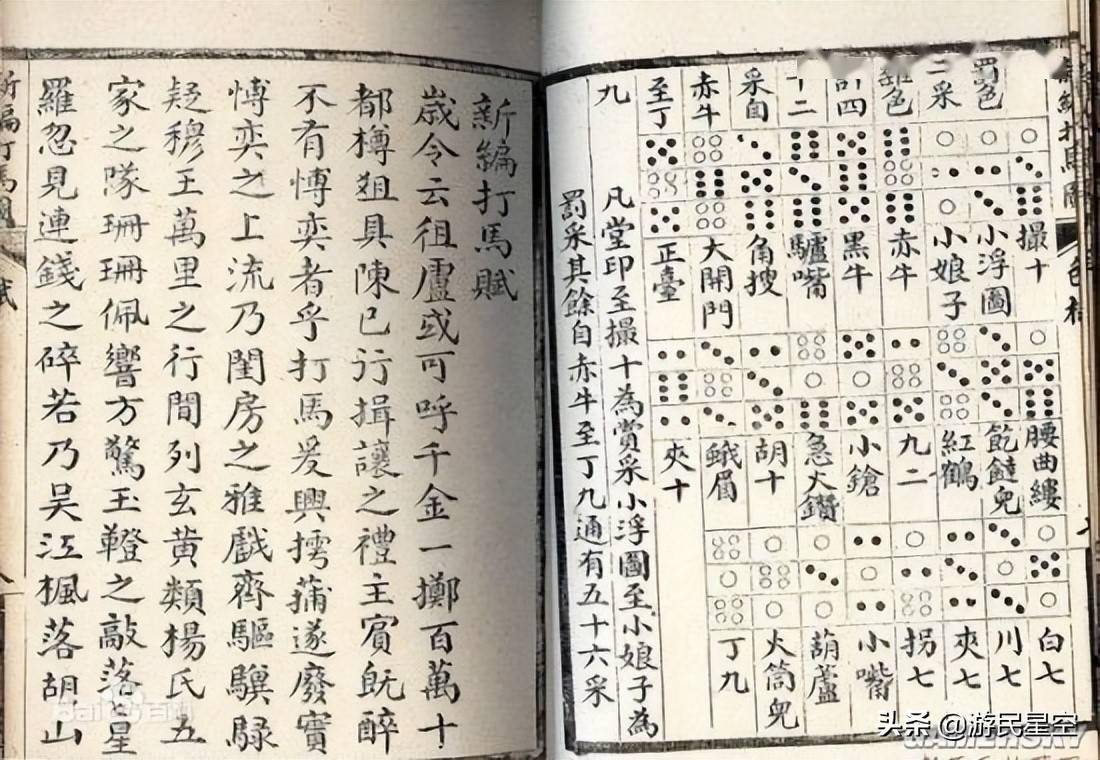 罰色
二采
雜色
計四
十二
采自
赤牛
至丁
九
撮十
小浮圖
小娘子
赤牛
黑牛
驢嘴
角搜
大開門
正臺
腰曲縷
飽饐兒
紅鶴
九二
小鎗
急火鑽
胡十
蛾眉
夾十
白七
川七
夾七
拐七
小嘴
葫蘆
火筒兒
丁九
凡堂印至撮十為賞采小浮圖至小娘子為
罰采其餘自赤牛至丁九通有五十六采
新編打馬賦
歲令云徂盧或可呼千金一擲百萬十
都樽俎具陳已行揖讓之禮主賓旣醉
不有愽奕者乎打馬爰興摴蒲遂廢實
愽奕之上流乃閨房之雅戲齊驅驥騄
疑穆王萬里之行間列玄黃類楊氏五
家之隊珊珊佩響方驚玉鐙之敲落星
羅忽見連錢之碎若乃吳江楓落胡山
头条 @游民星空
GAMERSKY